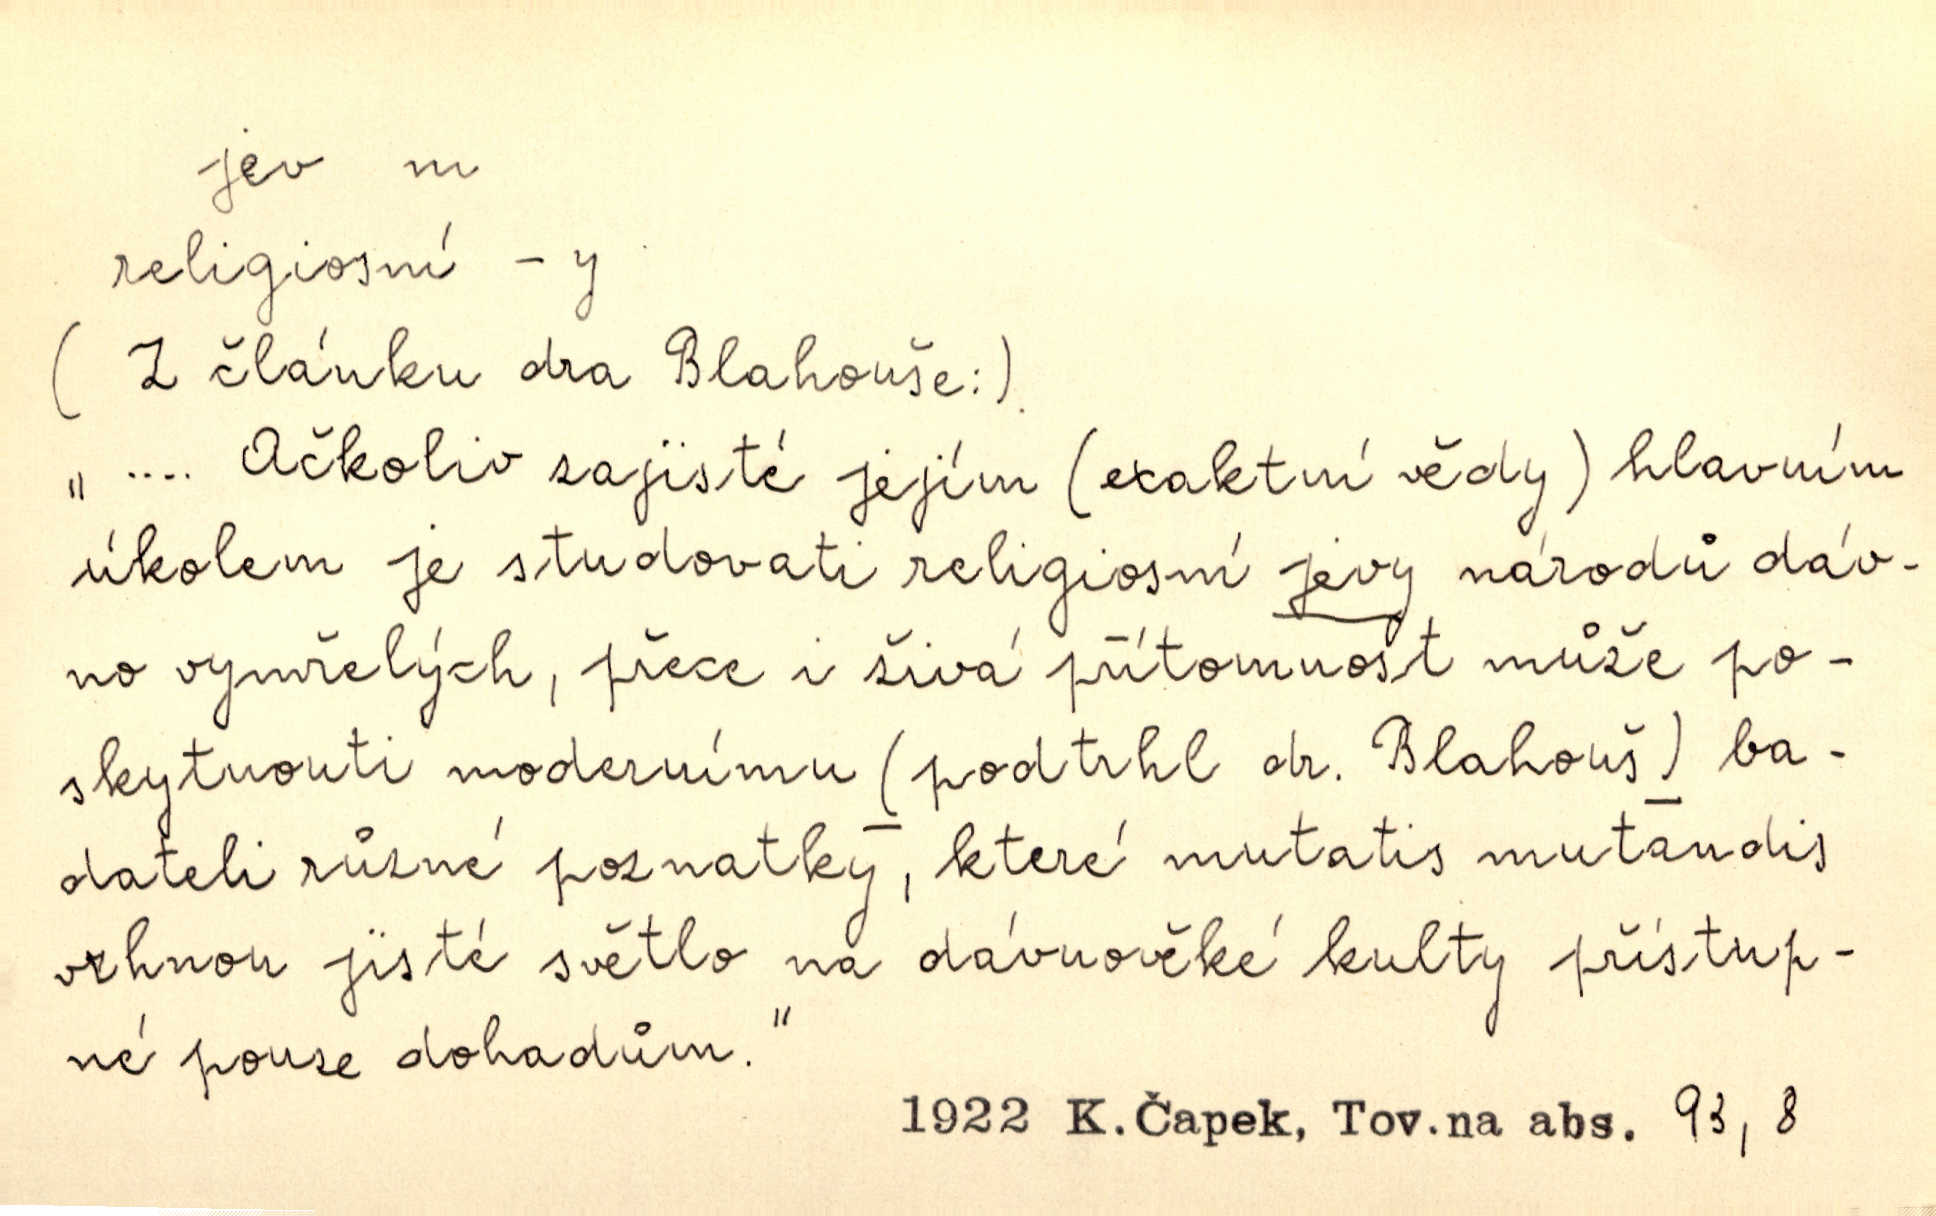 jev m
religiosní - y
( Z článku dra Blahouše:)
„ .... Ačkoliv zajisté jejím (exaktní vědy) hlavním
úkolem je studovati religiosní jevy národů dáv-
no vymřelých, přece i živá přítomnost může po-
skytnouti modernímu (podtrhl dr. Blahouš) ba-
dateli různé poznatky, které mutatis mutandis
vrhnou jisté světlo na dávnověké kulty přístup-
né pouze dohadům."
1922 K.Čapek, Tov.na abs. 93, 8